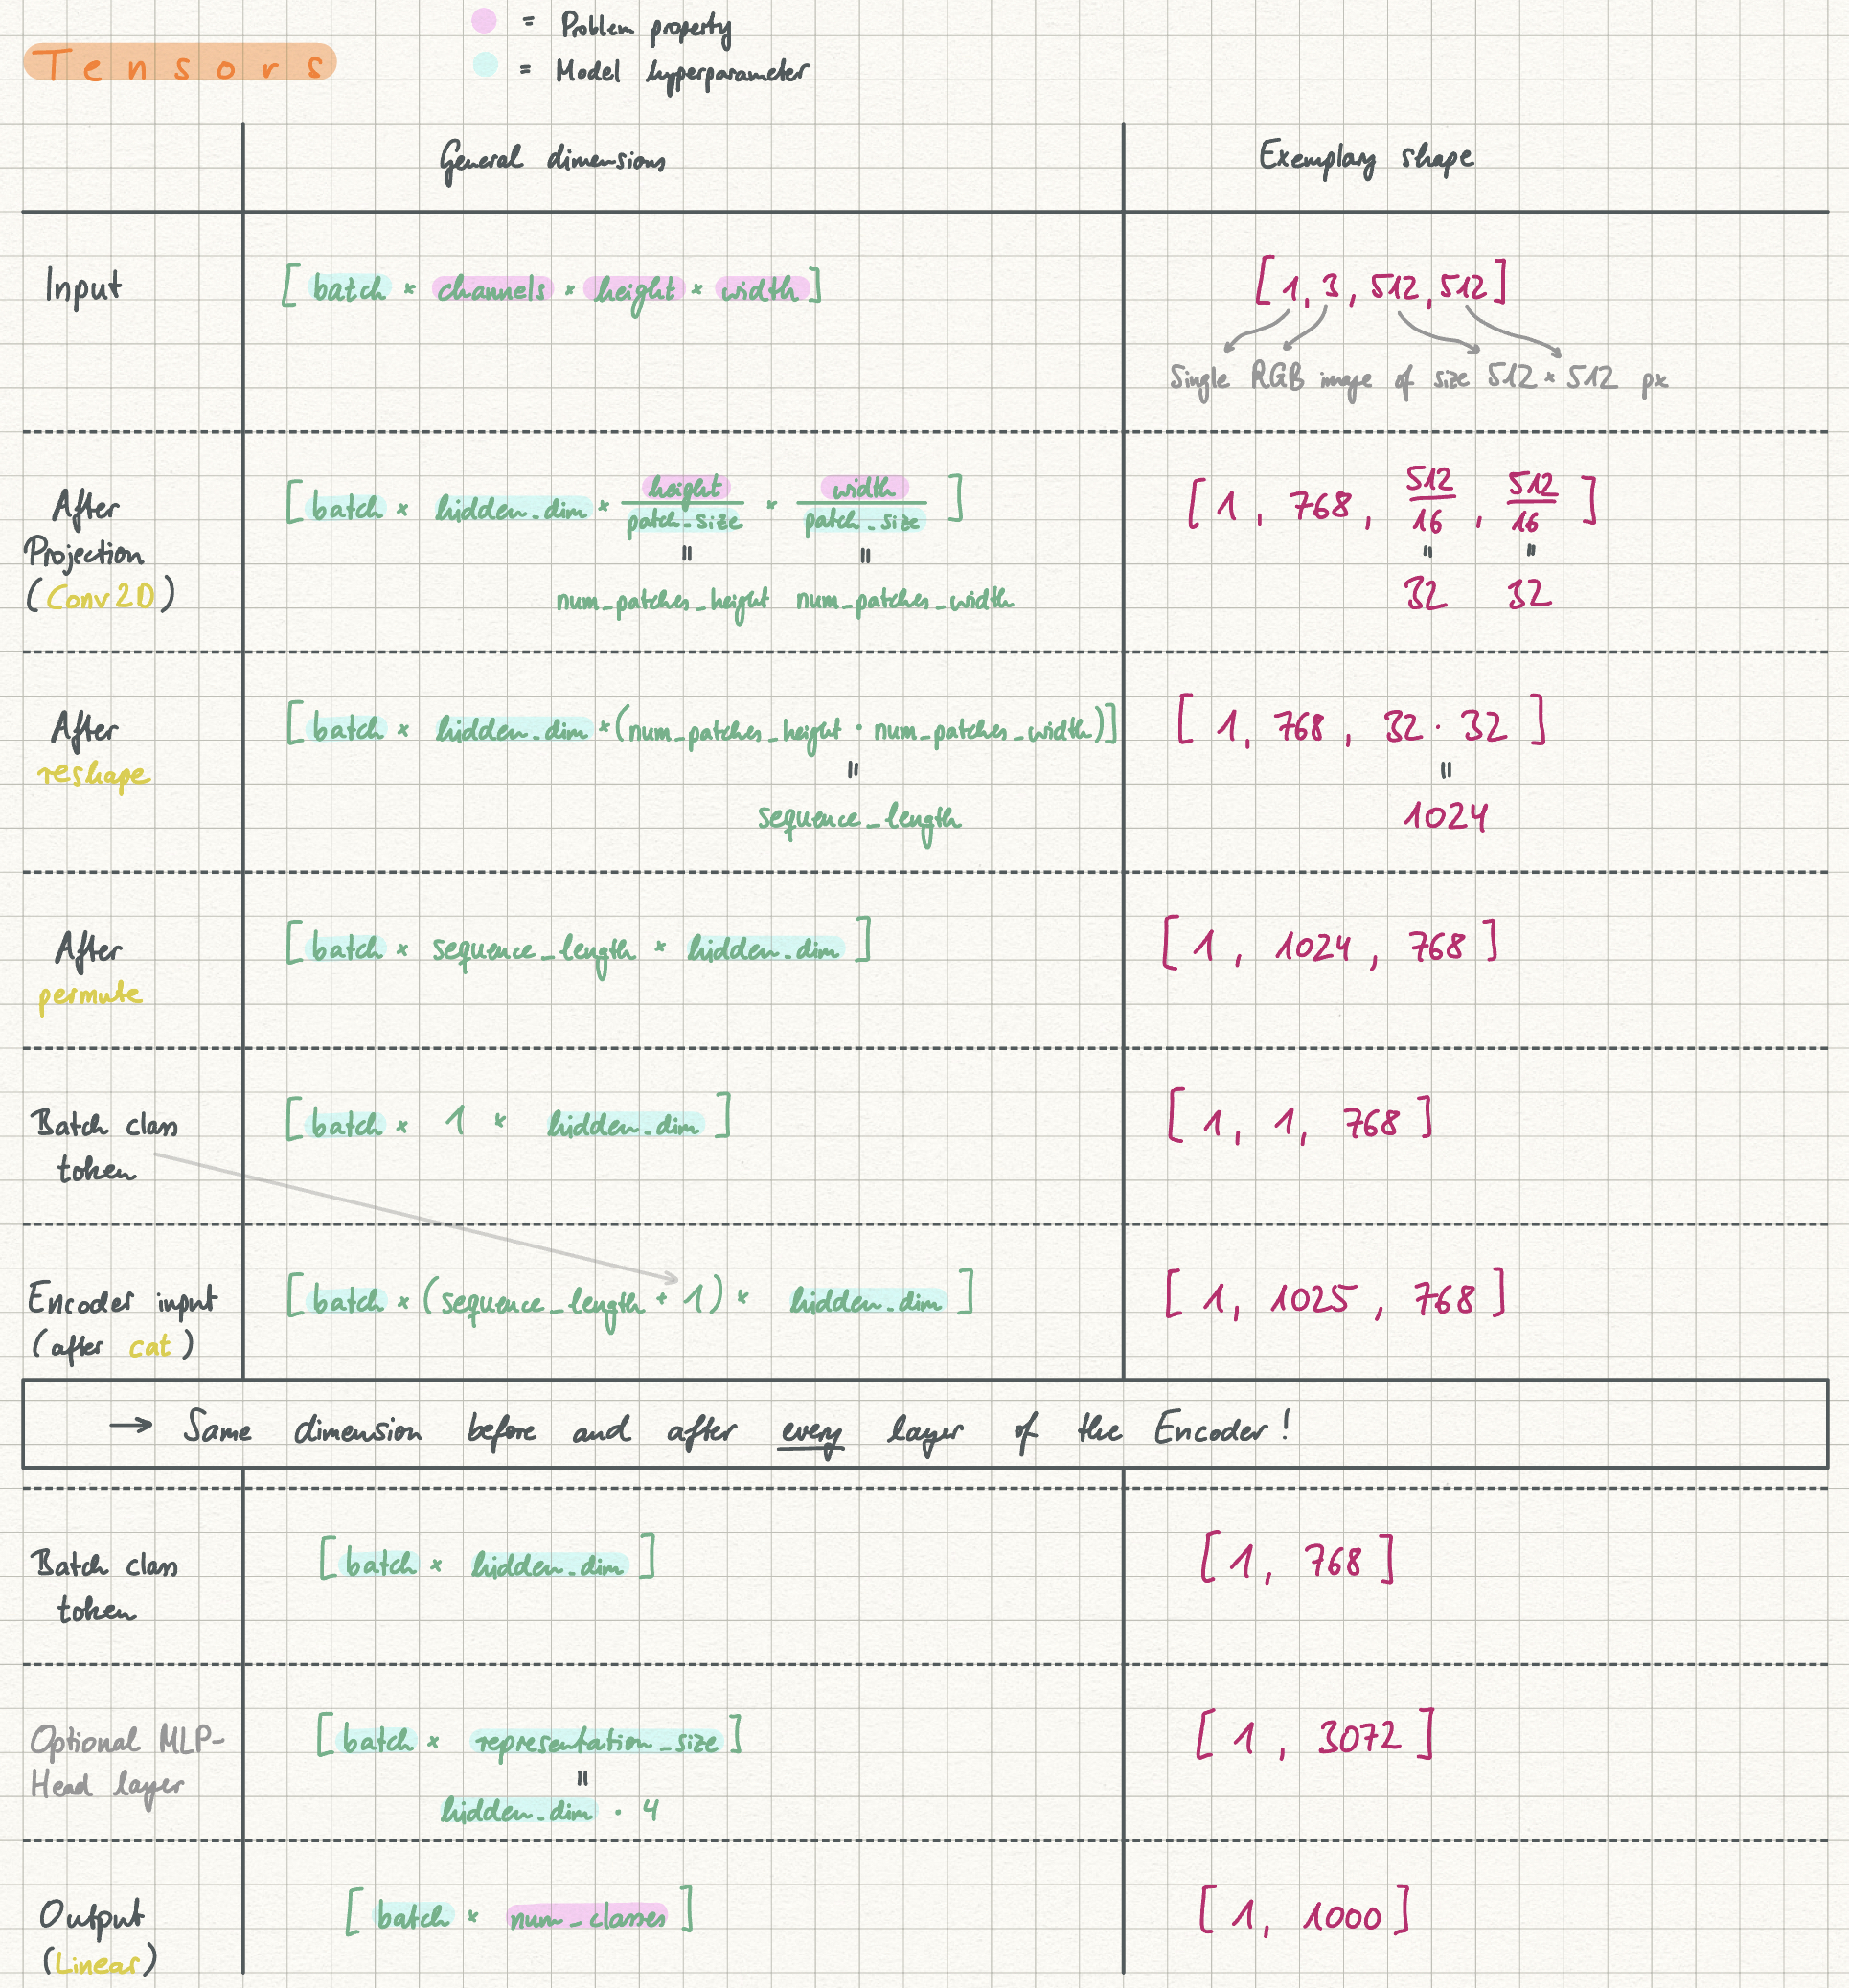 = Problem property
Tensors
= Model hyperparameter
General dimensions
Exemplary shape
Input
[batch × channels × height × width]
[1, 3, 512, 512]
Single RGB image of size 512 × 512 px
After
Projection
(Conv2D)
[batch × hidden_dim × height/patch_size × width/patch_size]
=
=
num_patches_height num_patches_width
[1, 768, 512/16, 512/16]
=
=
32 32
After
reshape
[batch × hidden_dim × (num_patches_height · num_patches_width)]
=
sequence_length
[1, 768, 32 · 32]
=
1024
After
permute
[batch × sequence_length × hidden_dim]
[1, 1024, 768]
Batch class
token
[batch × 1 × hidden_dim]
[1, 1, 768]
Encoder input
(after cat)
[batch × (sequence_length + 1) × hidden_dim]
[1, 1025, 768]
→ Same dimension before and after every layer of the Encoder!
Batch class
token
[batch × hidden_dim]
[1, 768]
Optional MLP-
Head layer
[batch × representation_size]
=
hidden_dim · 4
[1, 3072]
Output
(Linear)
[batch × num_classes]
[1, 1000]